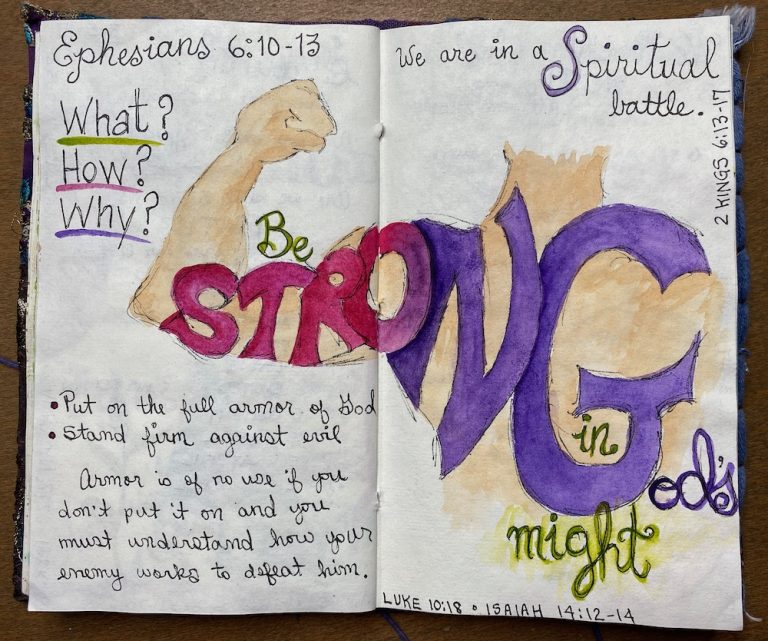 Ephesians 6:10-13
What?
How?
Why?
Be
STRONG
in
God's
might
• Put on the full armor of God
• Stand firm against evil
Armor is of no use if you
don't put it on and you
must understand how your
enemy works to defeat him.
We are in a Spiritual
battle.
2 KINGS 6:13-17
LUKE 10:18 • ISAIAH 14:12-14